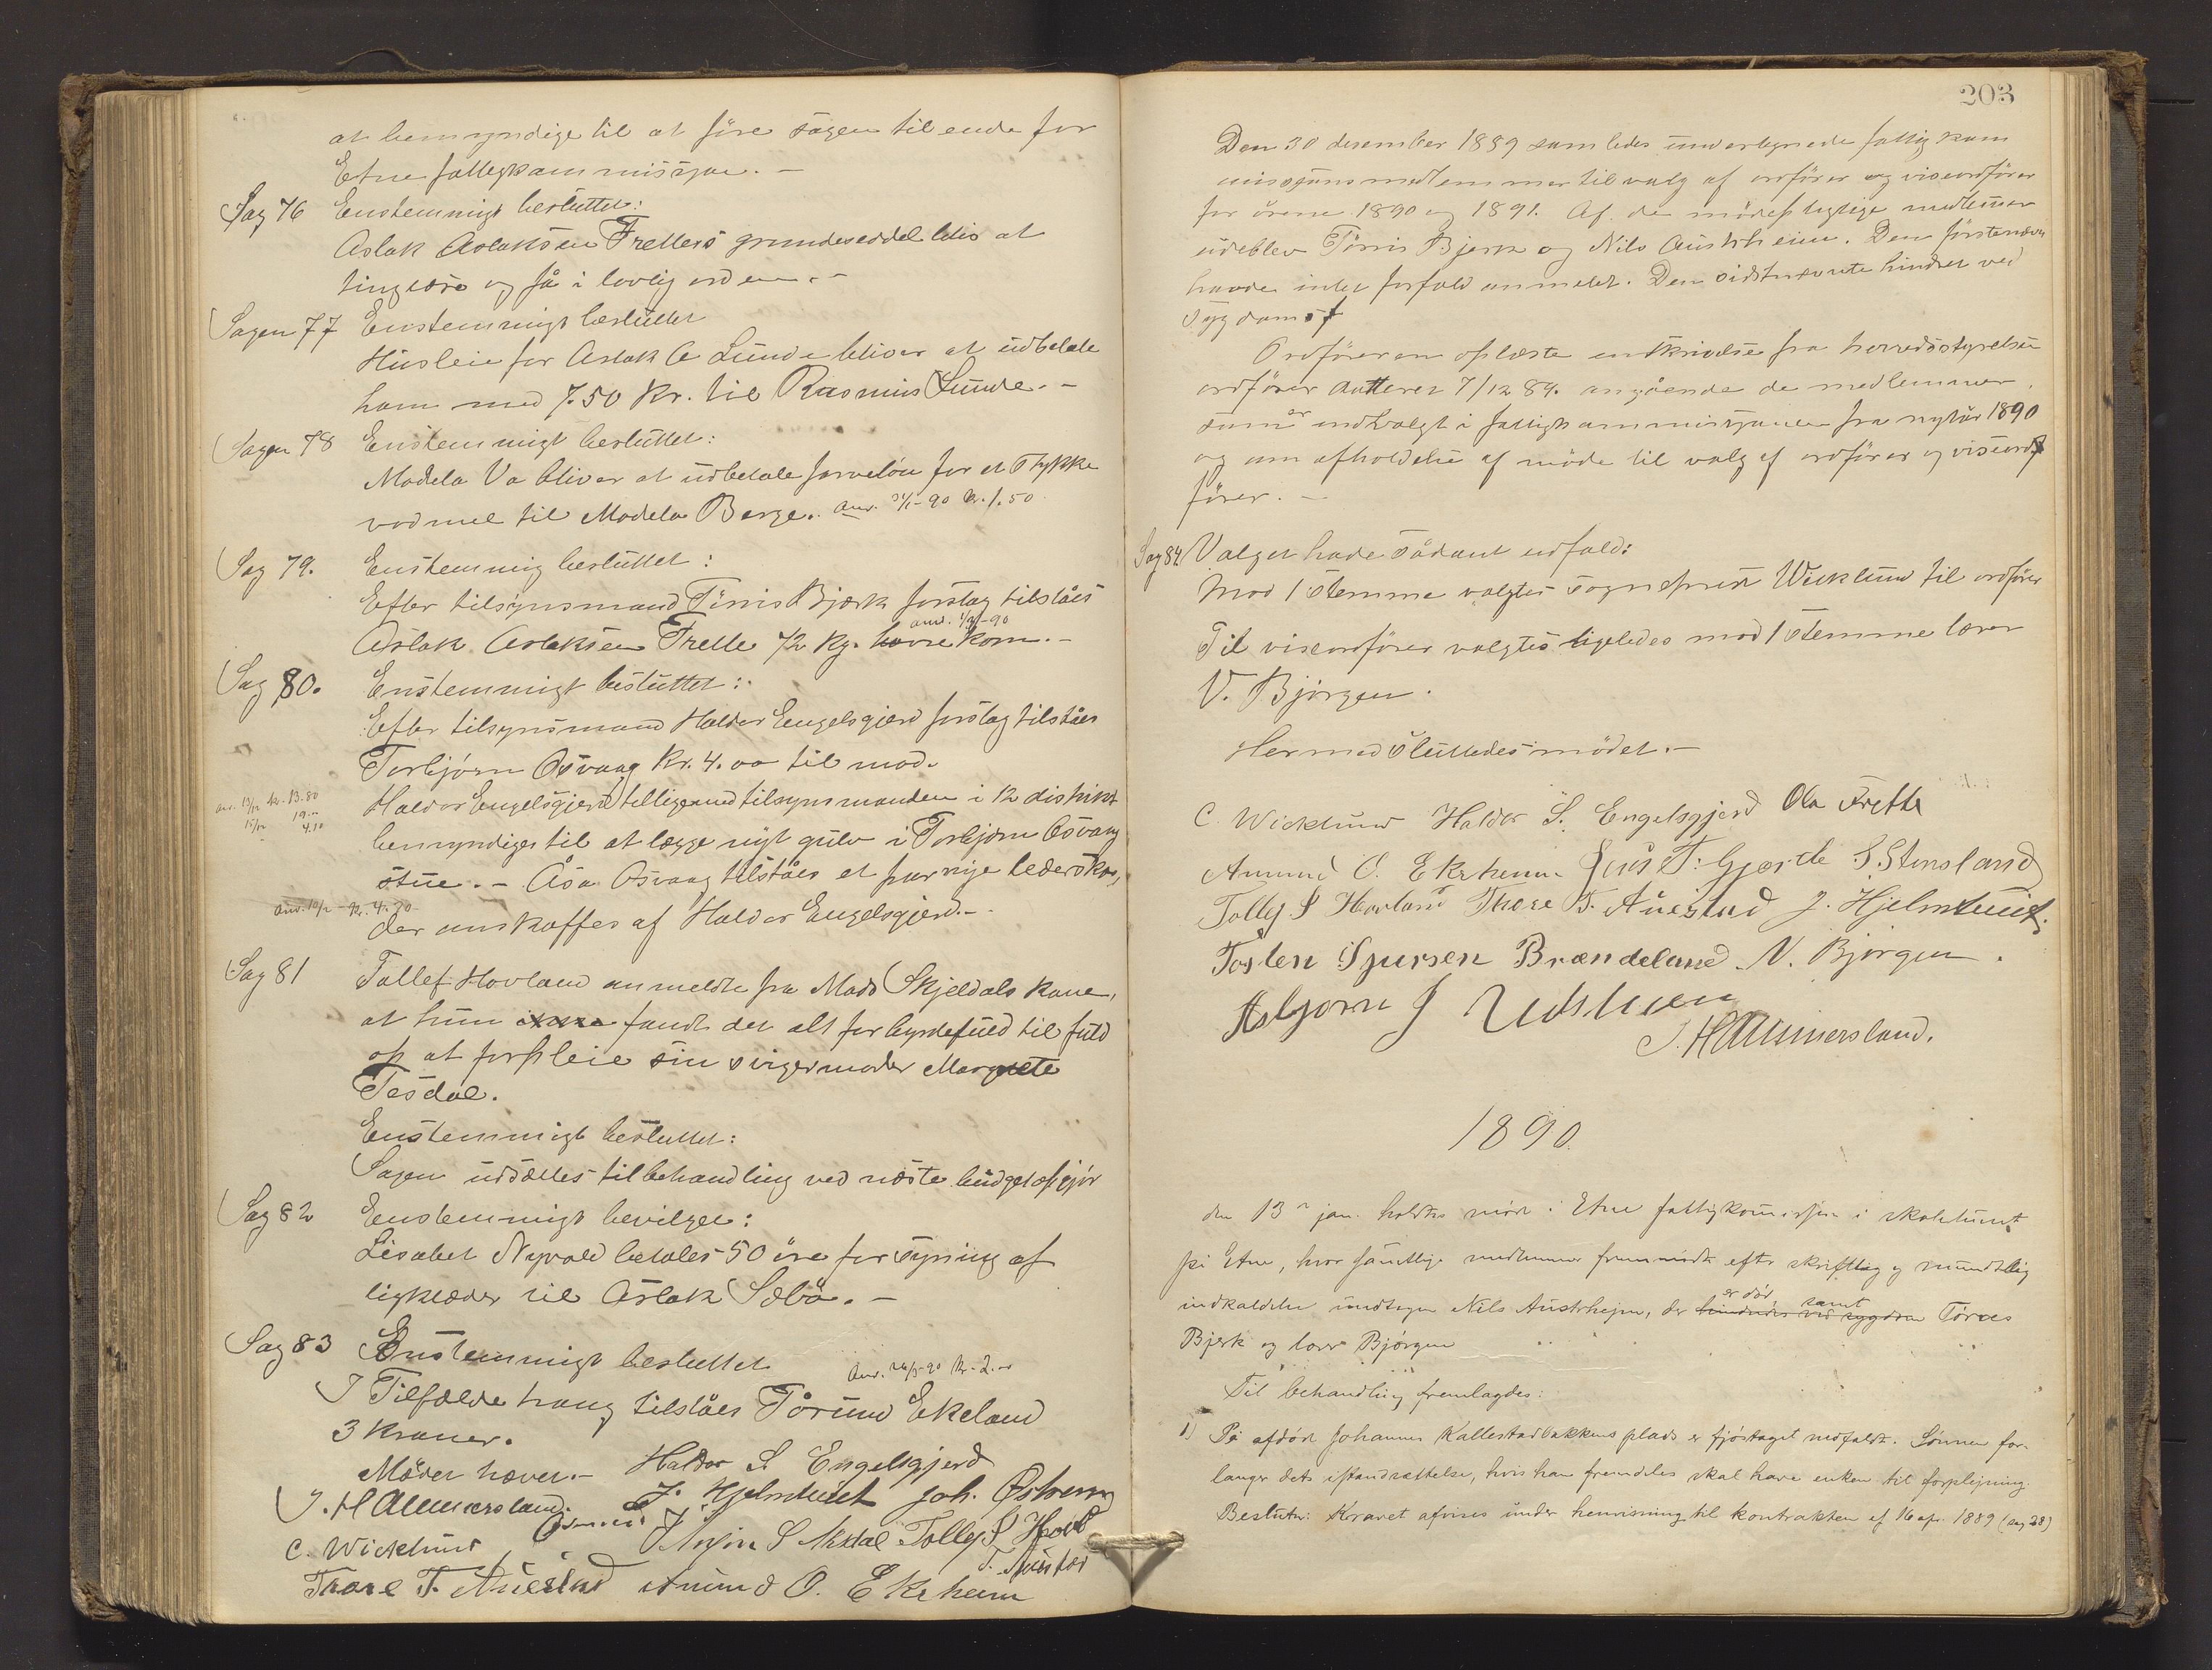 at bemyndige til at føre sagen tilende for
Etne fattigkommissjon. -
Sag 76 Enstemmigt besluttet:
Aslak Aslaksen Frettes grundeseddel blir at
tinglæse og få i lovlig orden. -
Sagen 77 Enstemmigt besluttet
Husleie for Aslak A Lunde bliver at udbetale
ham med 7.50 kr. til Rasmus Lunde. -
Sagen 78 Enstemmigt besluttet:
Madela Va bliver at udbetale farveløn for et stykke
vadmel til Madela Berge. anv. -90 kr. 1.50
Sag 79. Enstemmig besluttet:
Efter tilsynsmand Tørris Bjærk forslag tilståes
anv. -90
Aslak Aslaksen Frette 72 kg. havre korn. -
Sag 80. Enstemmigt besluttet:
Efter tilsynsmand Haldor Engelsgjerd forslag tilståes
Torbjørn Osvaag kr. 4.00 til mad.
anv. 13/12 kr. 13.80
15/12 19.-
4.10
Haldor Engelsgjerd tilligemed tilsynsmanden i 12 distrikt
bemyndiges til at lægge nyt gulv i Torbjørn Osvaag
stue. - Åsa Osvaag tilståes et par nye lædersko,
anv. 10/12 - kr. 4.30
der anskaffes af Haldor Engelsgjerd. -
Sag 81 Tollef Hovland anmeldte fra Mads Skjeldals kone,
at hun fandt det alt for byrdefuld til fuld
op at forpleie sin svigermoder Margrete
Tesdal.
Enstemmigt besluttet:
Sagen udsættes til behandling ved næste budgetopgjør
Sag 82 Enstemmigt bevilget:
Lisabet Nyvold betales 50 øre for syning af
ligklæder til Aslak Sæbø. -
Sag 83 Enstemmigt besluttet
Anv. -90 kr. 2.00
I Tilfælde trang tilståes Tórund Ekeland
3 kroner.
Mødet hævet. - Haldor S. Engelsgjerd
J. Hammersland. J. Hjelmtveit Joh. Østrem
C. Wicklund S Mxdal Tollef S Hovl
T. Austad
Thore T. Austad Amund O. Ekrheim
203
Den 30 desember 1889 samledes undertegnede fattigkom
missjonsmedlemmer til valg af ordfører og viseordfører
for årene 1890 og 1891. Af de mødepligtige medlemmer
udeblev Tørris Bjerk og Nils Austrheim. Den førstnævn
havde intet forfald anmeldt. Den sidstnævnte hindret ved
sygdom.
Ordføreren oplæste en skrivelse fra herredsstyrelsen
ordfører datteret 7/12 89. angående de medlemmer,
som er indvalgt i fattigkommissjonen fra nytår 1890
og om afholdelse af møde til valg af ordfører og viseord
fører. -
Sag 84 Valget havde sådant udfald:
Mod 1 stemme valgtes sogneprest Wicklund til ordfører
Til viseordfører valgtes ligeledes mod 1 stemme lærer
N. Bjørgen.
Hermed sluttedes mødet. -
C. Wicklund Haldor S. Engelsgjerd Ola Frette
Amund O. Ekrheim Jens T. Gjærde S. Stensland
Tollef S Hovland Thore T. Austad J. Hjelmtveit.
Tosten Sjursen Brændeland. N. Bjørgen.
Asbjørn J
J. Hammersland.
1890.
den 13de jan. holdtes møde i Etne fattigkomissjon i skolehuset
på Etne, hvor samtlige medlemmer fremmødte efter skriftlig og mundtlig
er død samt
indkaldelse undtagen Nils Austrheim, der hindredes ved sygdom Tørres
Bjerk og lærer Bjørgen
Til behandling fremlagdes:
1) På afdøde Johannes Kallestadbakkens plads er fjøstaget nedfaldt. Sønnen for-
langer dets istandsættelse, hvis han fremdeles skal have enken til forplejning.
Besluttet: Kravet afvises under henvisning til kontrakten af 16 apr. 1889 (sag 28)